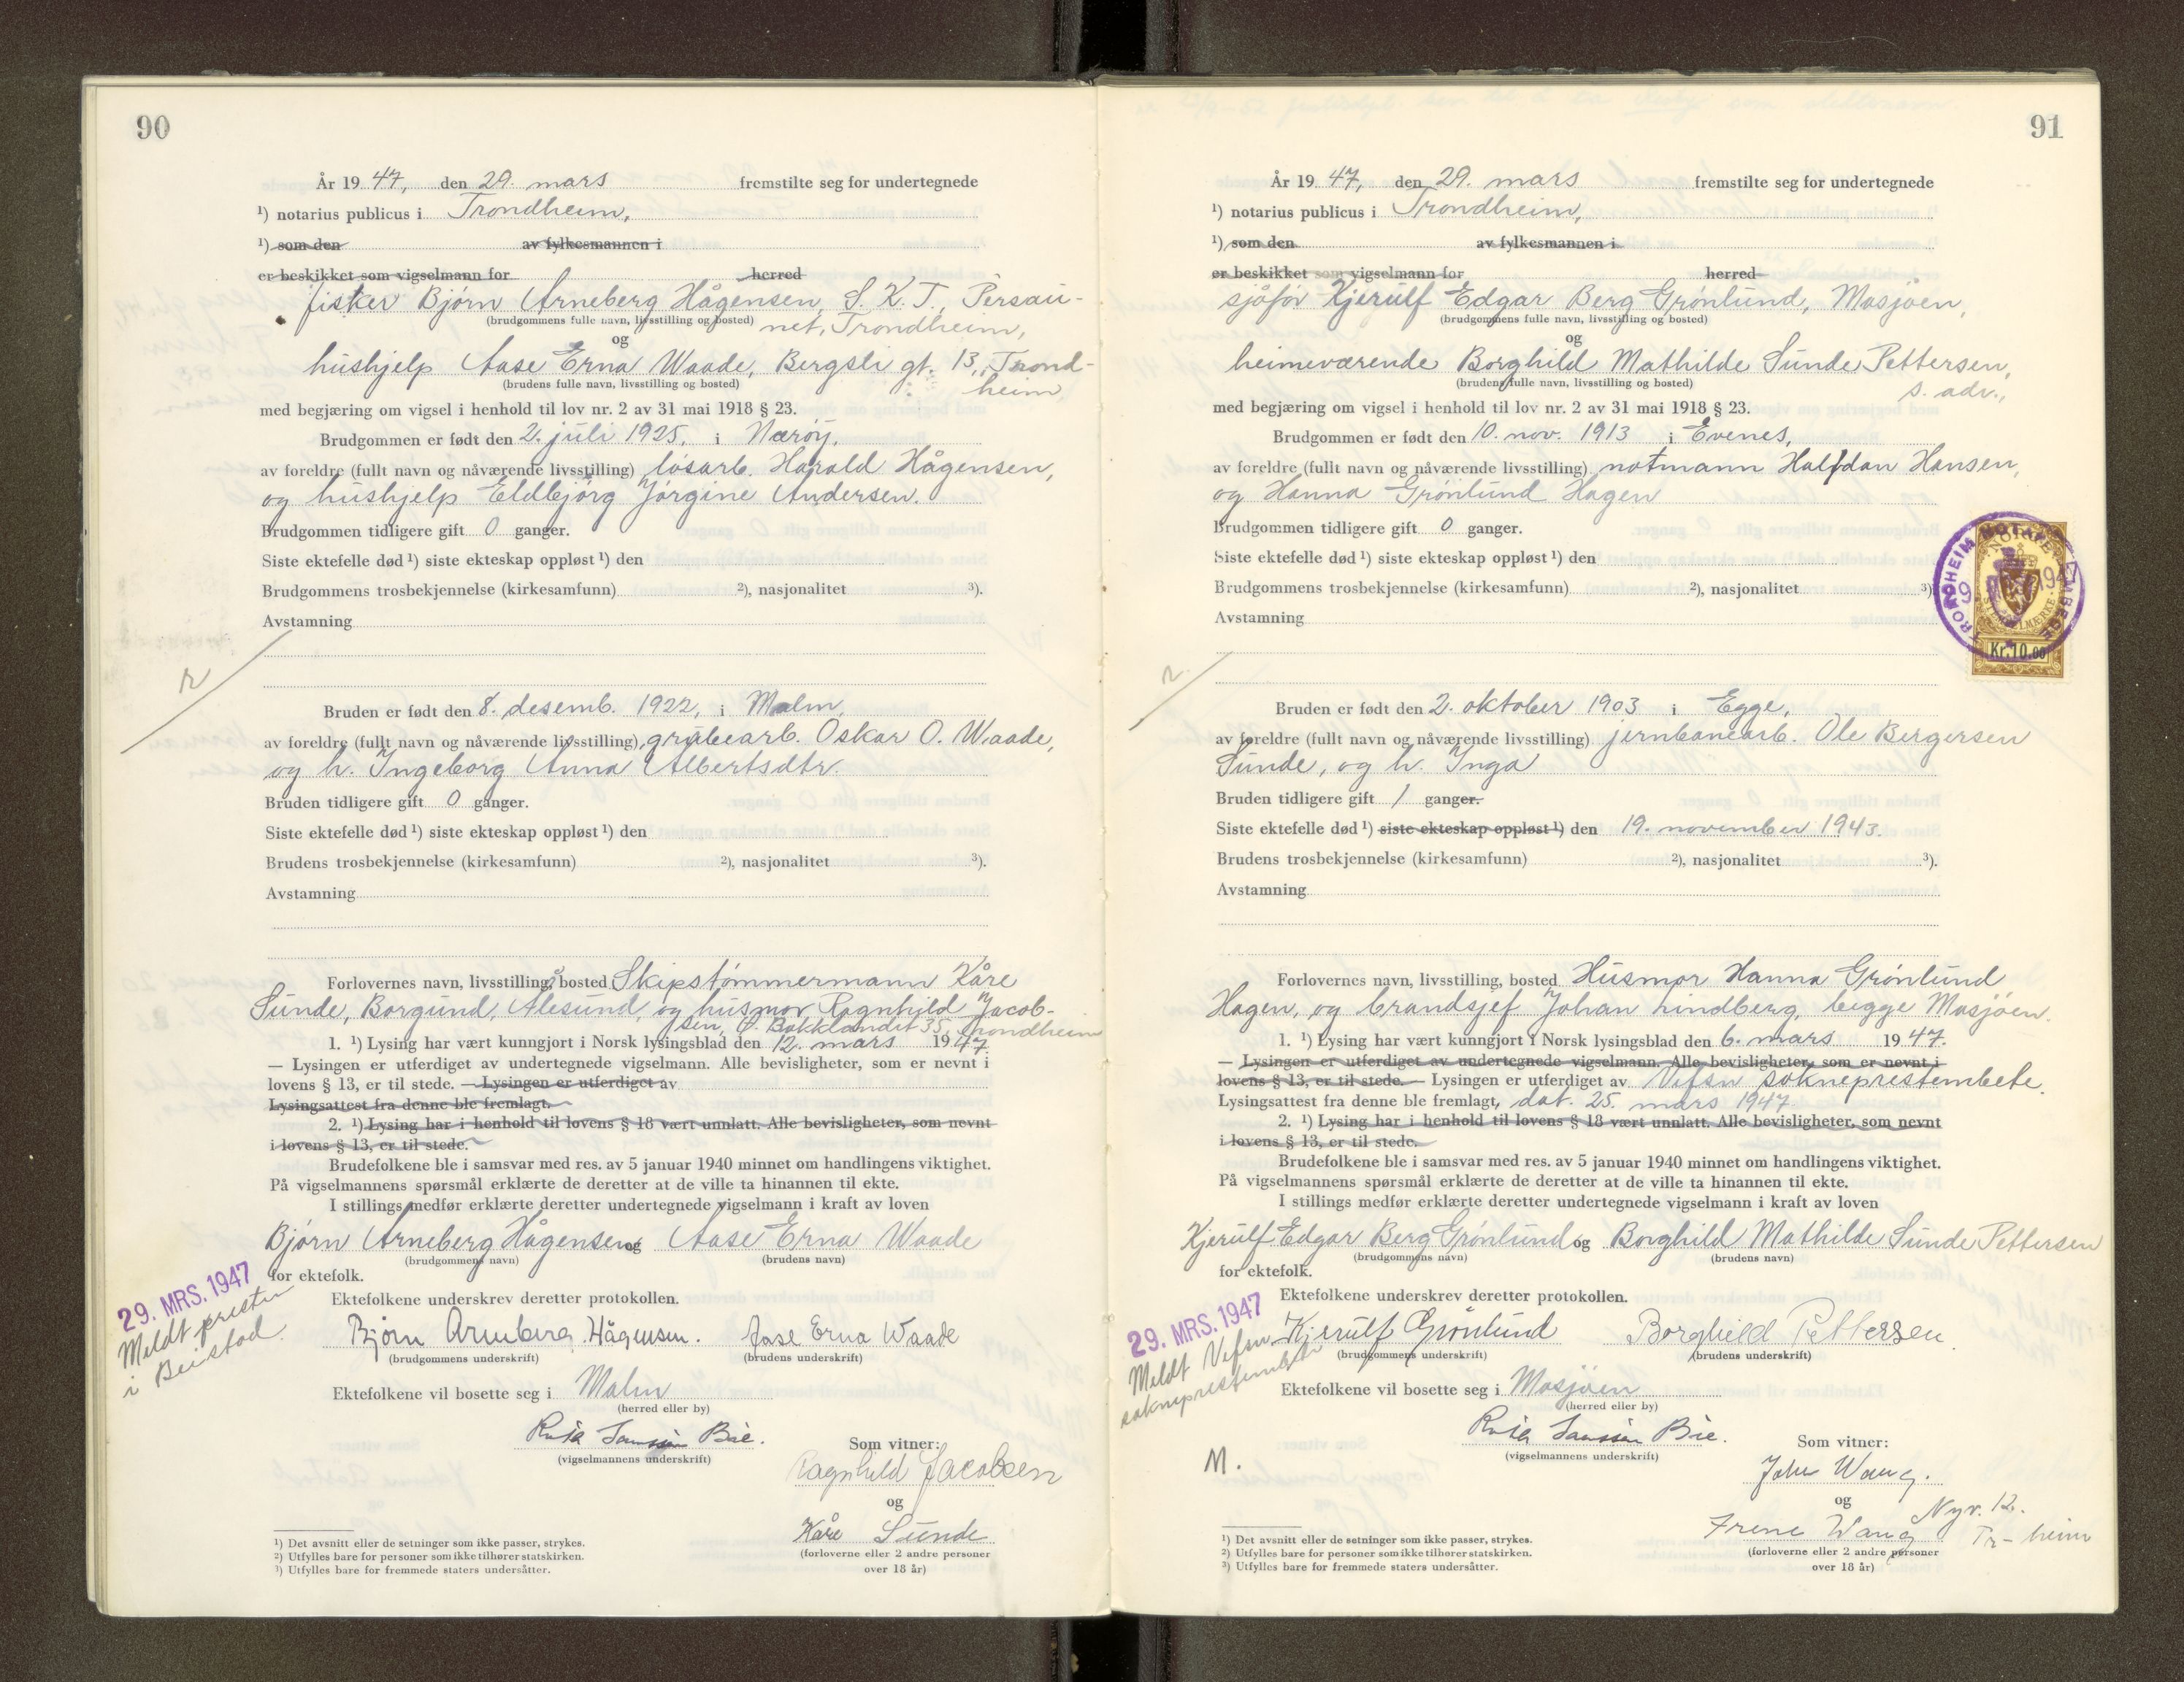 90
År 1947, den 29. mars fremstilte seg for undertegnede
¹) notarius publicus i Trondheim,
¹) som den av fylkesmannen i
er beskikket som vigselmann for herred
fisker Bjørn Arneberg Hågensen, S. K. T., Persau-
(brudgommens fulle navn, livsstilling og bosted) net, Trondheim,
og
hushjelp Aase Erna Waade, Bergsli gt. 13, Trond-
(brudens fulle navn, livsstilling og bosted) heim,
med begjæring om vigsel i henhold til lov nr. 2 av 31 mai 1918 § 23.
Brudgommen er født den 2. juli 1925, i Nærøy,
av foreldre (fullt navn og nåværende livsstilling) løsarb. Harald Hågensen,
og hushjelp Eldbjørg Jørgine Andersen.
Brudgommen tidligere gift 0 ganger.
Siste ektefelle død ¹) siste ekteskap oppløst ¹) den
Brudgommens trosbekjennelse (kirkesamfunn) ²), nasjonalitet ³).
Avstamning
Bruden er født den 8. desemb. 1922, i Malm,
av foreldre (fullt navn og nåværende livsstilling) grubearb. Oskar O. Waade,
og h. Ingeborg Anna Albertsdtr.
Bruden tidligere gift 0 ganger.
Siste ektefelle død ¹) siste ekteskap oppløst ¹) den
Brudens trosbekjennelse (kirkesamfunn) ²), nasjonalitet ³).
Avstamning
Forlovernes navn, livsstilling, bosted Skipstømmermann Kåre
Sunde, Borgund, Ålesund, og husmor Ragnhild Jacob-
sen, Ø. Bakklandet 35, Trondheim
1. ¹) Lysing har vært kunngjort i Norsk lysingsblad den 12. mars 1947.
— Lysingen er utferdiget av undertegnede vigselmann. Alle bevisligheter, som er nevnt i
lovens § 13, er til stede. — Lysingen er utferdiget av
Lysingsattest fra denne ble fremlagt.
2. ¹) Lysing har i henhold til lovens § 18 vært unnlatt. Alle bevisligheter, som nevnt
i lovens § 13, er til stede.
Brudefolkene ble i samsvar med res. av 5 januar 1940 minnet om handlingens viktighet.
På vigselmannens spørsmål erklærte de deretter at de ville ta hinannen til ekte.
I stillings medfør erklærte deretter undertegnede vigselmann i kraft av loven
Bjørn Arneberg Hågensen og Aase Erna Waade
(brudgommens navn) (brudens navn)
for ektefolk.
29. MRS. 1947
Meldt presten
i Beistad.
Ektefolkene underskrev deretter protokollen.
Bjørn Arneberg Hågensen. Aase Erna Waade
(brudgommens underskrift) (brudens underskrift)
Ektefolkene vil bosette seg i Malm
(herred eller by)
Bie.
(vigselmannens underskrift)
Som vitner:
Ragnhild Jacobsen
og
Kåre Sunde
(forloverne eller 2 andre personer
over 18 år)
¹) Det avsnitt eller de setninger som ikke passer, strykes.
²) Utfylles bare for personer som ikke tilhører statskirken.
³) Utfylles bare for fremmede staters undersåtter.
91
År 1947, den 29. mars fremstilte seg for undertegnede
¹) notarius publicus i Trondheim,
¹) som den av fylkesmannen i
er beskikket som vigselmann for herred
sjåfør Kjerulf Edgar Berg Grönlund, Mosjøen,
(brudgommens fulle navn, livsstilling og bosted)
og
heimeværende Borghild Mathilde Sunde Pettersen,
(brudens fulle navn, livsstilling og bosted) s. adr.,
med begjæring om vigsel i henhold til lov nr. 2 av 31 mai 1918 § 23.
Brudgommen er født den 10. nov. 1913 i Evenes,
av foreldre (fullt navn og nåværende livsstilling) notmann Halfdan Hansen,
og Hanna Grönlund Hagen
Brudgommen tidligere gift 0 ganger.
Siste ektefelle død ¹) siste ekteskap oppløst ¹) den
Brudgommens trosbekjennelse (kirkesamfunn) ²), nasjonalitet ³).
Avstamning
NORGE
STEMPELMERKE
Kr. 10.00
Bruden er født den 2. oktober 1903 i Egge,
av foreldre (fullt navn og nåværende livsstilling) jernbanearb. Ole Bergersen
Sunde, og h. Inga
Bruden tidligere gift 1 ganger.
Siste ektefelle død ¹) siste ekteskap oppløst ¹) den 19. november 1943.
Brudens trosbekjennelse (kirkesamfunn) ²), nasjonalitet ³).
Avstamning
Forlovernes navn, livsstilling, bosted Husmor Hanna Grönlund
Hagen, og brandsjef Johan Lindberg, begge Mosjøen.
1. ¹) Lysing har vært kunngjort i Norsk lysingsblad den 6. mars 1947.
— Lysingen er utferdiget av undertegnede vigselmann. Alle bevisligheter, som er nevnt i
lovens § 13, er til stede. — Lysingen er utferdiget av Vefsn sokneprestembete.
Lysingsattest fra denne ble fremlagt, dat. 25. mars 1947.
2. ¹) Lysing har i henhold til lovens § 18 vært unnlatt. Alle bevisligheter, som nevnt
i lovens § 13, er til stede.
Brudefolkene ble i samsvar med res. av 5 januar 1940 minnet om handlingens viktighet.
På vigselmannens spørsmål erklærte de deretter at de ville ta hinannen til ekte.
I stillings medfør erklærte deretter undertegnede vigselmann i kraft av loven
Kjerulf Edgar Berg Grönlund og Borghild Mathilde Sunde Pettersen
(brudgommens navn) (brudens navn)
for ektefolk.
29. MRS. 1947
Meldt Vefsn
sokneprestembete
Ektefolkene underskrev deretter protokollen.
Kjerulf Grönlund Borghild Pettersen
(brudgommens underskrift) (brudens underskrift)
Ektefolkene vil bosette seg i Mosjøen
(herred eller by)
Bie.
(vigselmannens underskrift)
M.
Som vitner:
John Wang.
og Nyv. 12.
Irene Wang Tr-heim
(forloverne eller 2 andre personer
over 18 år)
¹) Det avsnitt eller de setninger som ikke passer, strykes.
²) Utfylles bare for personer som ikke tilhører statskirken.
³) Utfylles bare for fremmede staters undersåtter.